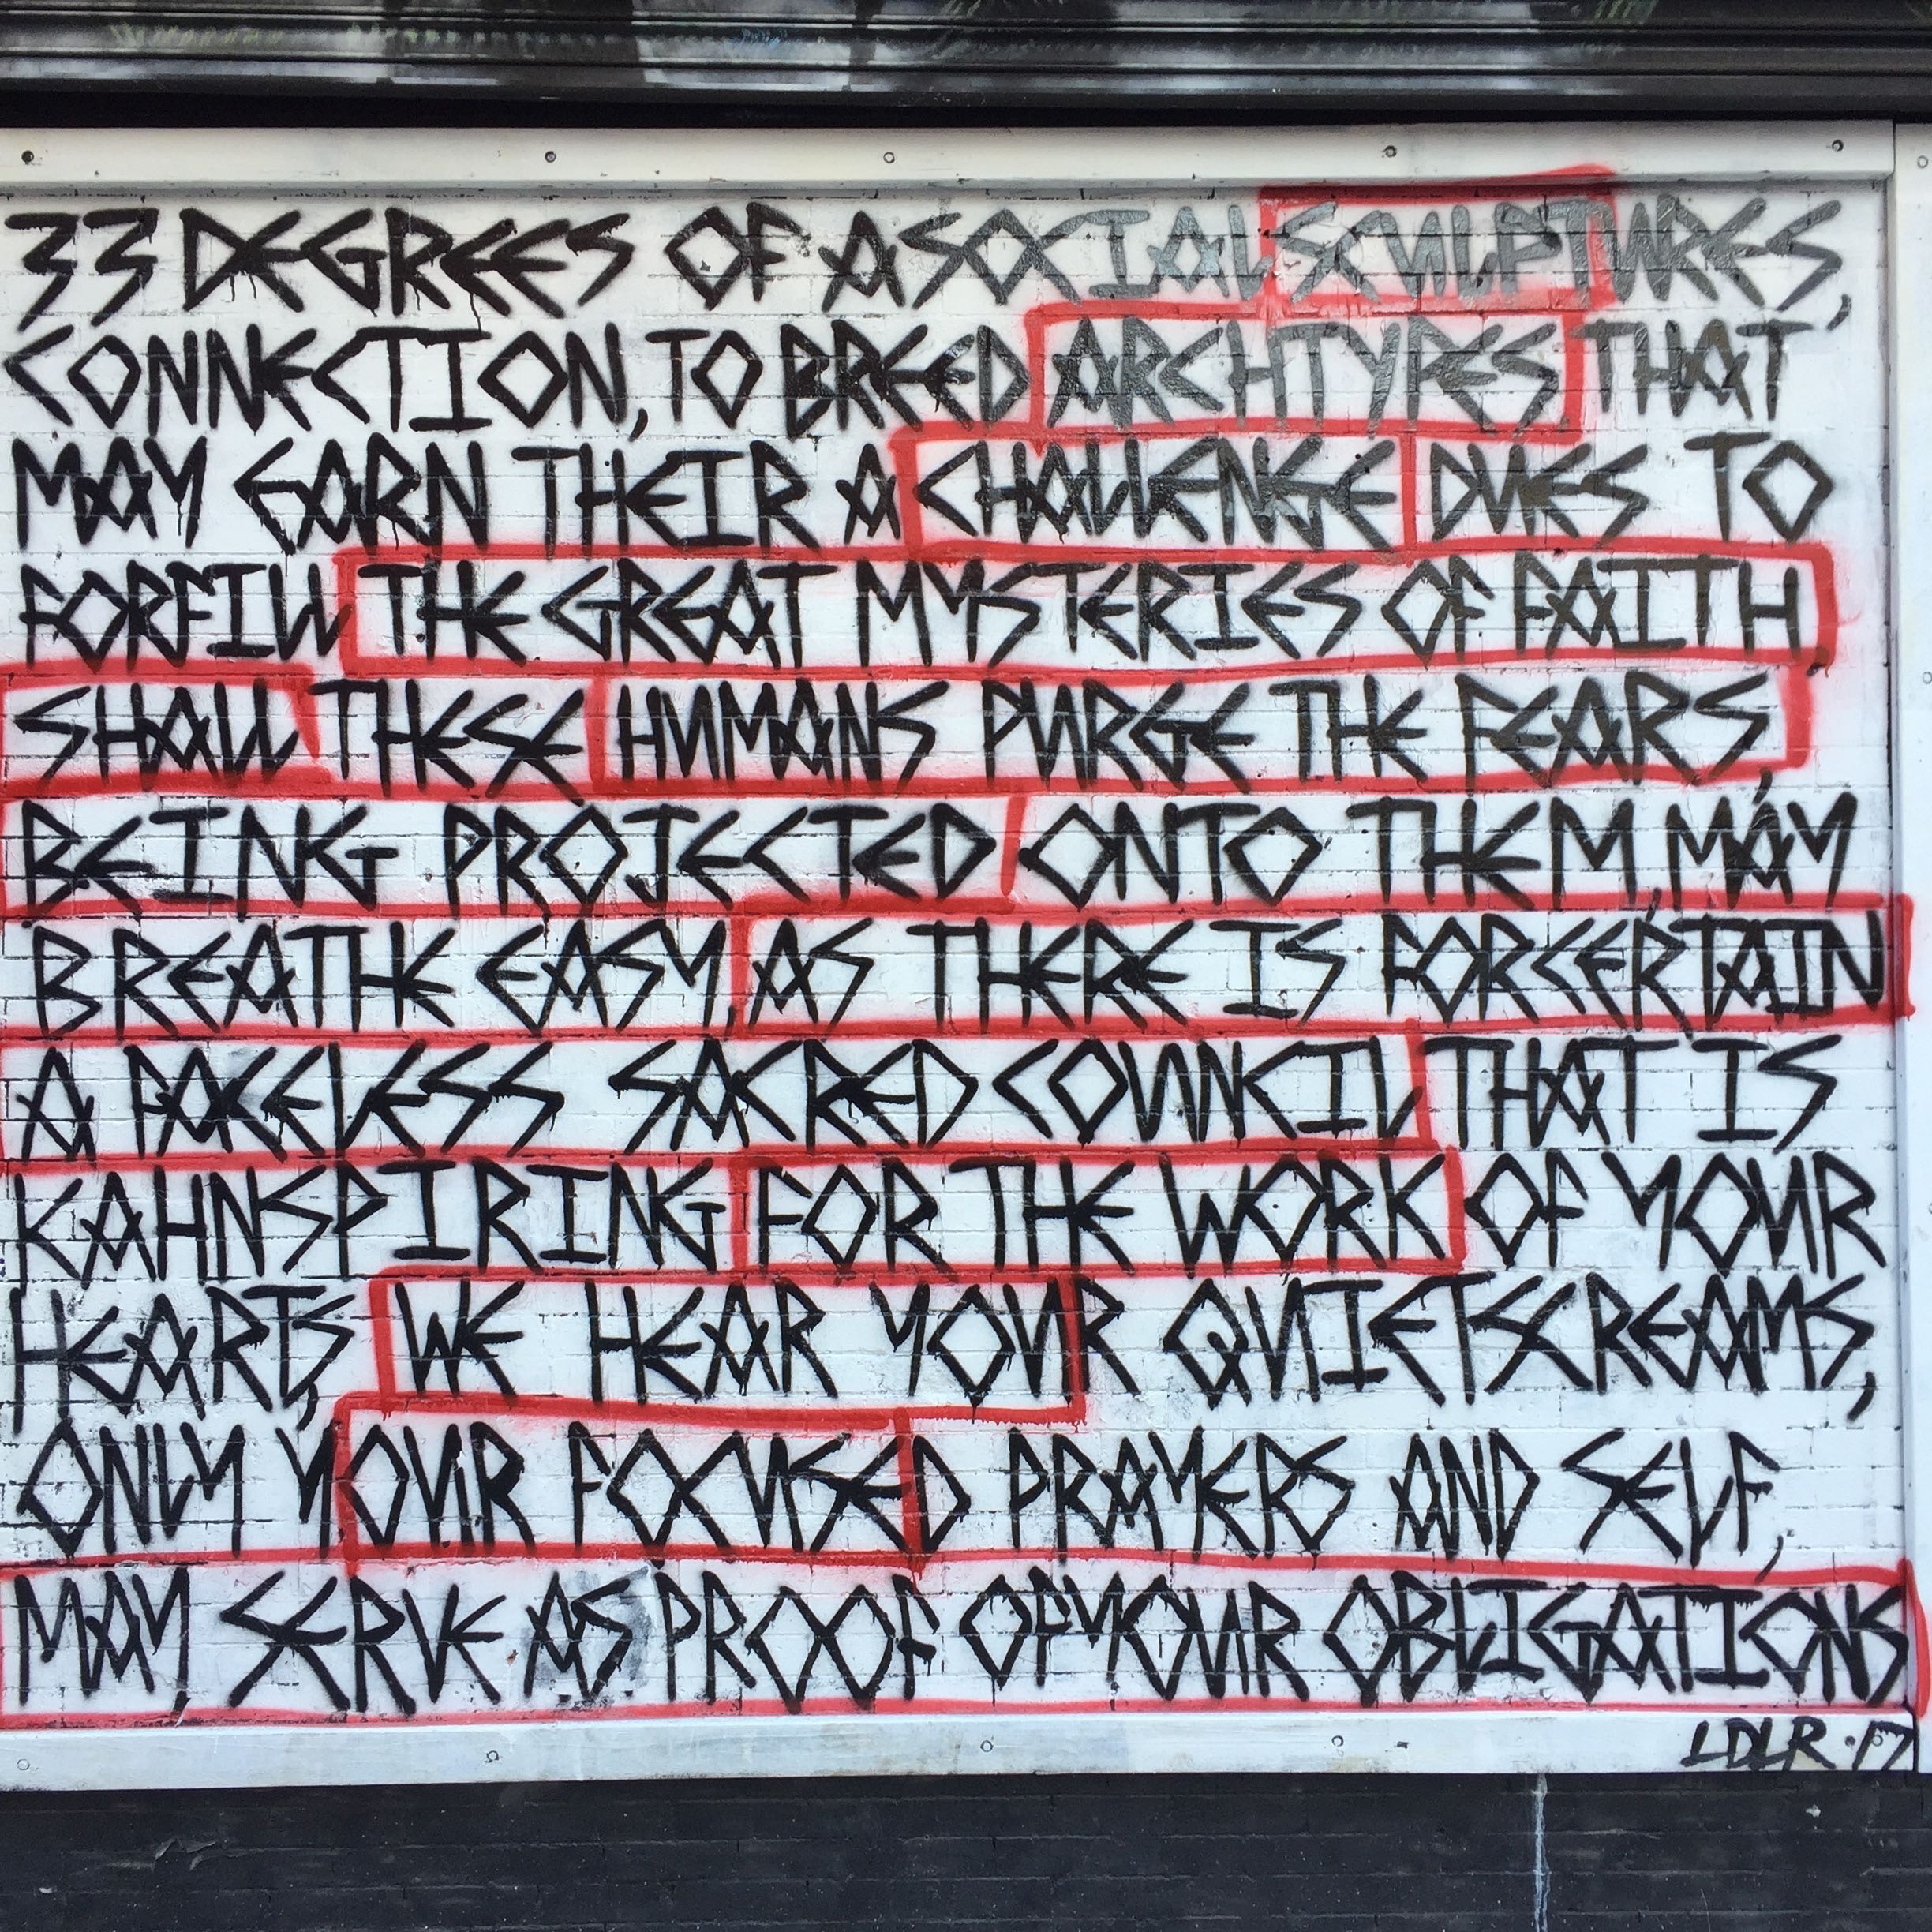 33 DEGREES OF A SOCIAL SCULPTURES,
CONNECTION, TO BREED ARCHTYPES THAT
MAY EARN THEIR A CHALLENGE DUES TO
FORFILL THE GREAT MYSTERIES OF FAITH,
SHALL THESE HUMANS PURGE THE FEARS,
BEING PROJECTED ONTO THEM, MAY
BREATHE EASY, AS THERE IS FORCERTAIN
A FACELESS SACRED COUNCIL THAT IS
KAHNSPIRING FOR THE WORK OF YOUR
HEARTS, WE HEAR YOUR QUIET SCREAMS,
ONLY YOUR FOCUSED PRAYERS AND SELF,
MAY, SERVE AS PROOF OF YOUR OBLIGATIONS
LDLR ·17